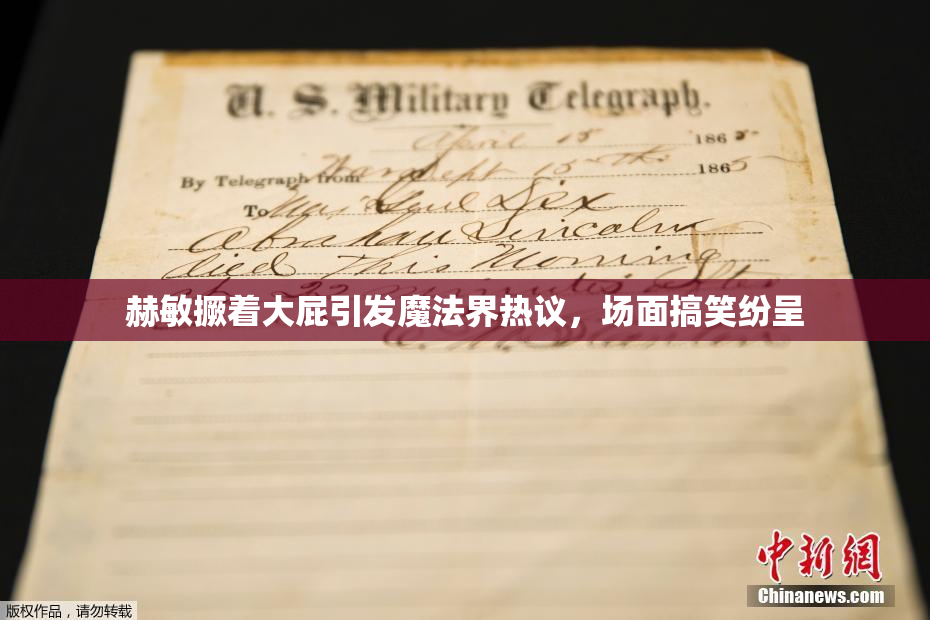 U. S. Military Telegraph.
April 15 1865
By Telegraph from War Dept 15th 1865
To Maj Genl Dix
Abraham Lincoln
died This Morning
at 22 minutes after
赫敏撅着大屁引发魔法界热议，场面搞笑纷呈
E. M. Stanton
中新网
Chinanews.com
版权作品，请勿转载